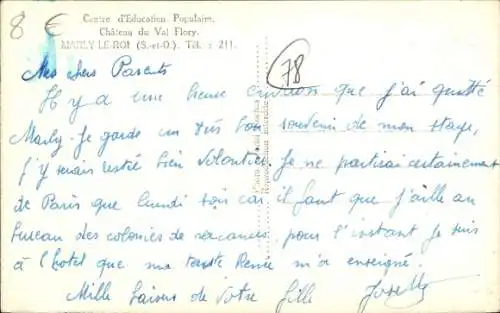 8 €
Centre d'Education Populaire.
Château du Val Flory.
MARLY-LE-ROI (S.-et-O.). Tél. : 211.
78
Mes chers Parents
Il y a une heure environ que j'ai quitté
Marly. Je garde un très bon souvenir de mon stage,
j'y serais restée bien volontiers. Je ne partirai certainement
de Paris que lundi soir car il faut que j'aille au
bureau des colonies de vacances, pour l'instant je suis
à l'hotel que ma tante Renée m'a enseigné
Mille baisers de votre fille Josette